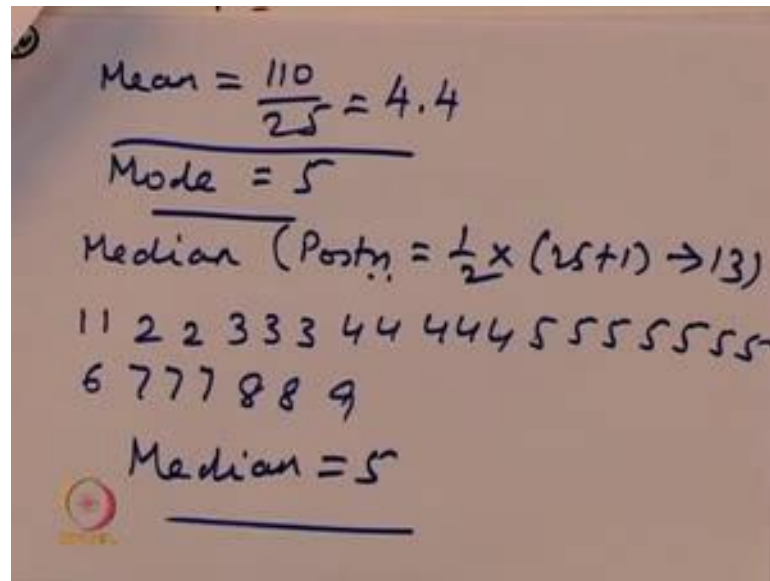 Mean = 110/25 = 4.4
Mode = 5
Median (Postn = 1/2 x (25+1) → 13)
11 2 2 3 3 3 4 4 4 4 4 5 5 5 5 5 5 5
6 7 7 7 8 8 9
Median = 5